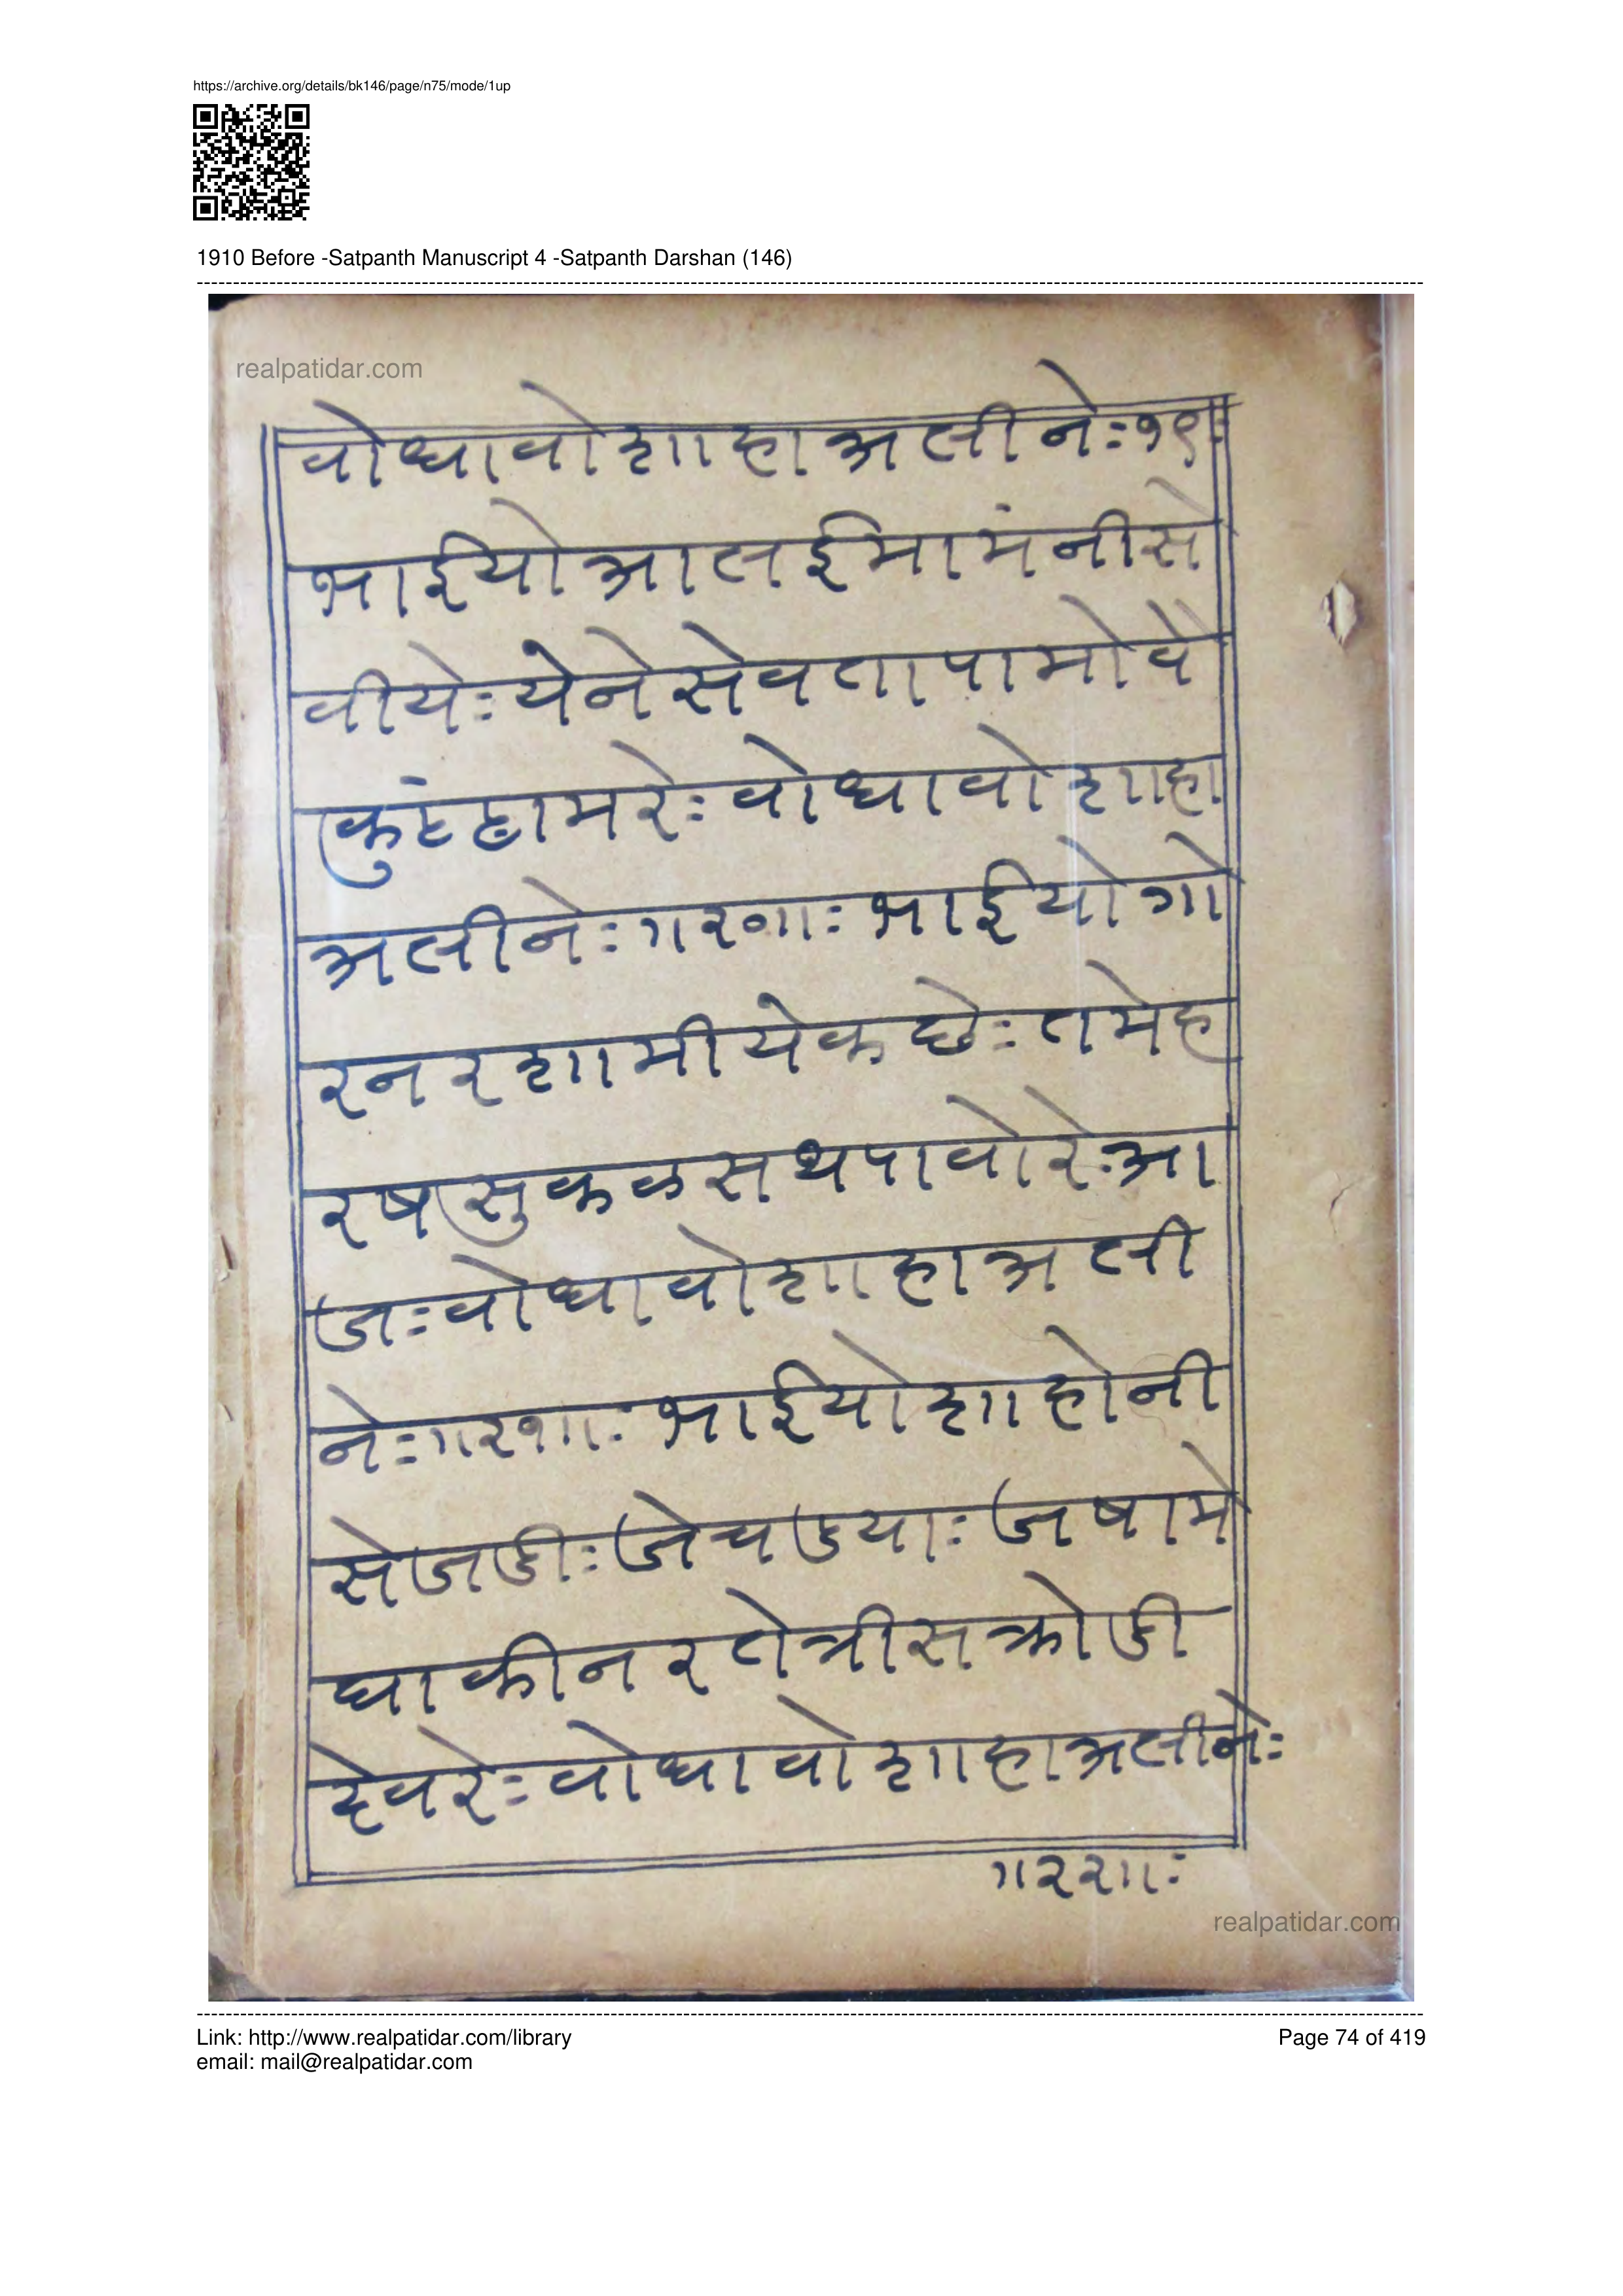 https://archive.org/details/bk146/page/n75/mode/1up
1910 Before -Satpanth Manuscript 4 -Satpanth Darshan (146)
realpatidar.com
वोधावोशाहाअलीनेः१९
भाईयोआलईमामंनीसे
वीयेः येनेसेवतापामोवै
कुंठ्ठामरेः वोधावोशाहा
अलीनेः ॥२०॥ः भाईयोगो
रनरशामीयेकछेः तमेह
रषसुकळसथपावोरेः आ
जः वोधावोशाहाअली
नेः ॥२१॥ः भाईयोशाहोनी
सेजडीः जेचडयाः जषामे
घाकीनरतेत्रीसक्रोडी
देवरेः वोधावोशाहाअलीनेः
॥२२॥ः
realpatidar.com
Link: http://www.realpatidar.com/library
Page 74 of 419
email: mail@realpatidar.com